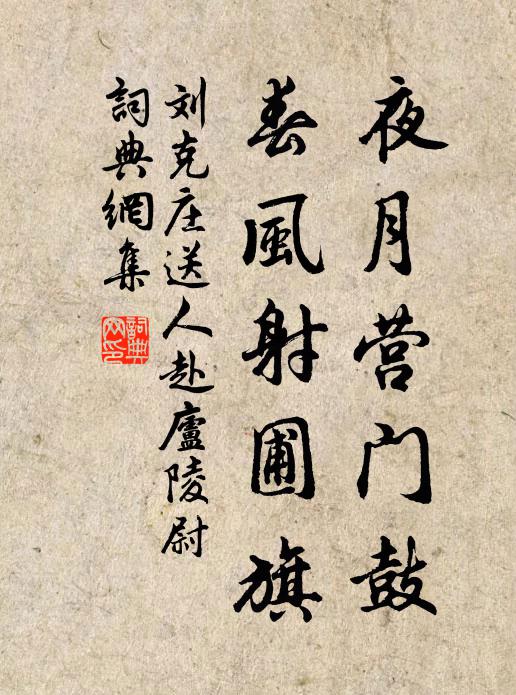 夜月营门鼓
春風射圃旗
刘克庄送人赴廬陵尉
詞典網集
詞典网印